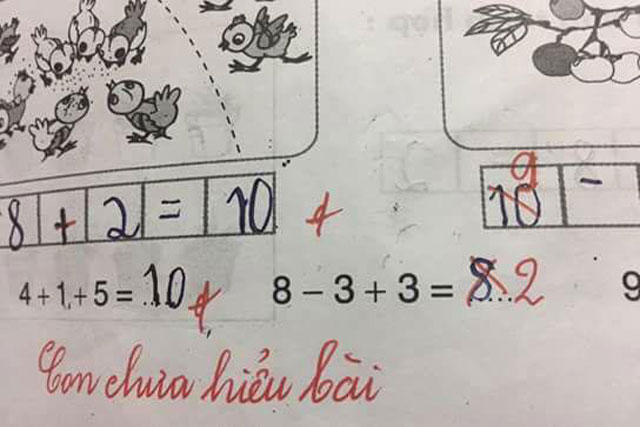 8 + 2 = 10 đ
10 9 -
4 + 1 + 5 = 10 đ
8 – 3 + 3 = 8 2
9
Con chưa hiểu bài